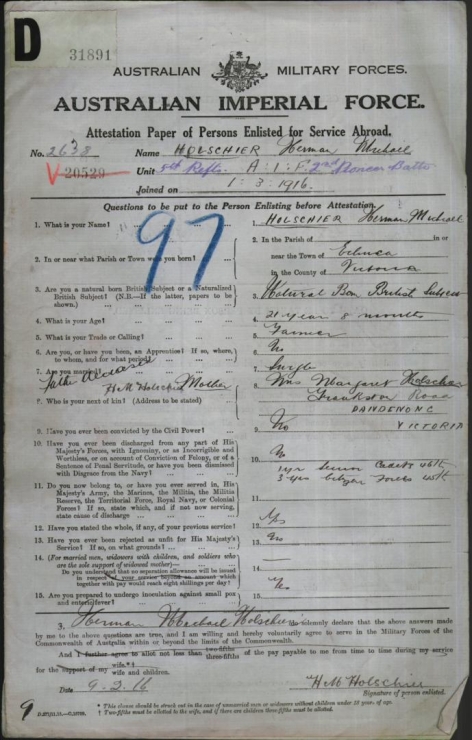 D
31891
AUSTRALIAN MILITARY FORCES.
AUSTRALIAN IMPERIAL FORCE.
Attestation Paper of Persons Enlisted for Service Abroad.
No. 2638 Name HOLSCHIER Herman Michael
V 20529 Unit Refts. A.I.F. 2nd Pioneer Battn
Joined on 1.3.1916.
Questions to be put to the Person Enlisting before Attestation.
97
1. What is your Name? 1. HOLSCHIER Herman Michael
2. In or near what Parish or Town were you born? 2. In the Parish of in or
near the Town of Echuca
in the County of Victoria
3. Are you a natural born British Subject or a Naturalized
British Subject? (N.B.—If the latter, papers to be
shown.) 3. Natural Born British Subject
4. What is your Age? 4. 21 year 8 months
5. What is your Trade or Calling? 5. Farmer
6. Are you, or have you been, an Apprentice? If so, where,
to whom, and for what period? 6. No
7. Are you married? 7. Single
Father deceased
H M Holschier Mother
8. Who is your next of kin? (Address to be stated) 8. Mrs Margaret Holschier
Frankston Road
DANDENONG
VICTORIA
9. Have you ever been convicted by the Civil Power? 9. No
10. Have you ever been discharged from any part of His
Majesty's Forces, with Ignominy, or as Incorrigible and
Worthless, or on account of Conviction of Felony, or of a
Sentence of Penal Servitude, or have you been dismissed
with Disgrace from the Navy? 10. No
11. Do you now belong to, or have you ever served in, His
Majesty's Army, the Marines, the Militia, the Militia
Reserve, the Territorial Force, Royal Navy, or Colonial
Forces? If so, state which, and if not now serving,
state cause of discharge 11. 1 yr Senior Cadets 46th
3 yrs Citizen Forces 45th
12. Have you stated the whole, if any, of your previous service? 12. Yes
13. Have you ever been rejected as unfit for His Majesty's
Service? If so, on what grounds? 13. No
14. (For married men, widowers with children, and soldiers who
are the sole support of widowed mother)—
Do you understand that no separation allowance will be issued
in respect of your service beyond an amount which
together with pay would reach eight shillings per day? 14. —
15. Are you prepared to undergo inoculation against small pox
and enteric fever? 15. Yes
3. Herman Michael Holschier do solemnly declare that the above answers made
by me to the above questions are true, and I am willing and hereby voluntarily agree to serve in the Military Forces of the
Commonwealth of Australia within or beyond the limits of the Commonwealth.
And I further agree to allot not less than two-fifths three-fifths of the pay payable to me from time to time during my service
for the support of my wife.*† wife and children.
Date 9.2.16 H M Holschier
Signature of person enlisted.
9
* This clause should be struck out in the case of unmarried men or widowers without children under 18 years of age.
† Two-fifths must be allotted to the wife, and if there are children three-fifths must be allotted.